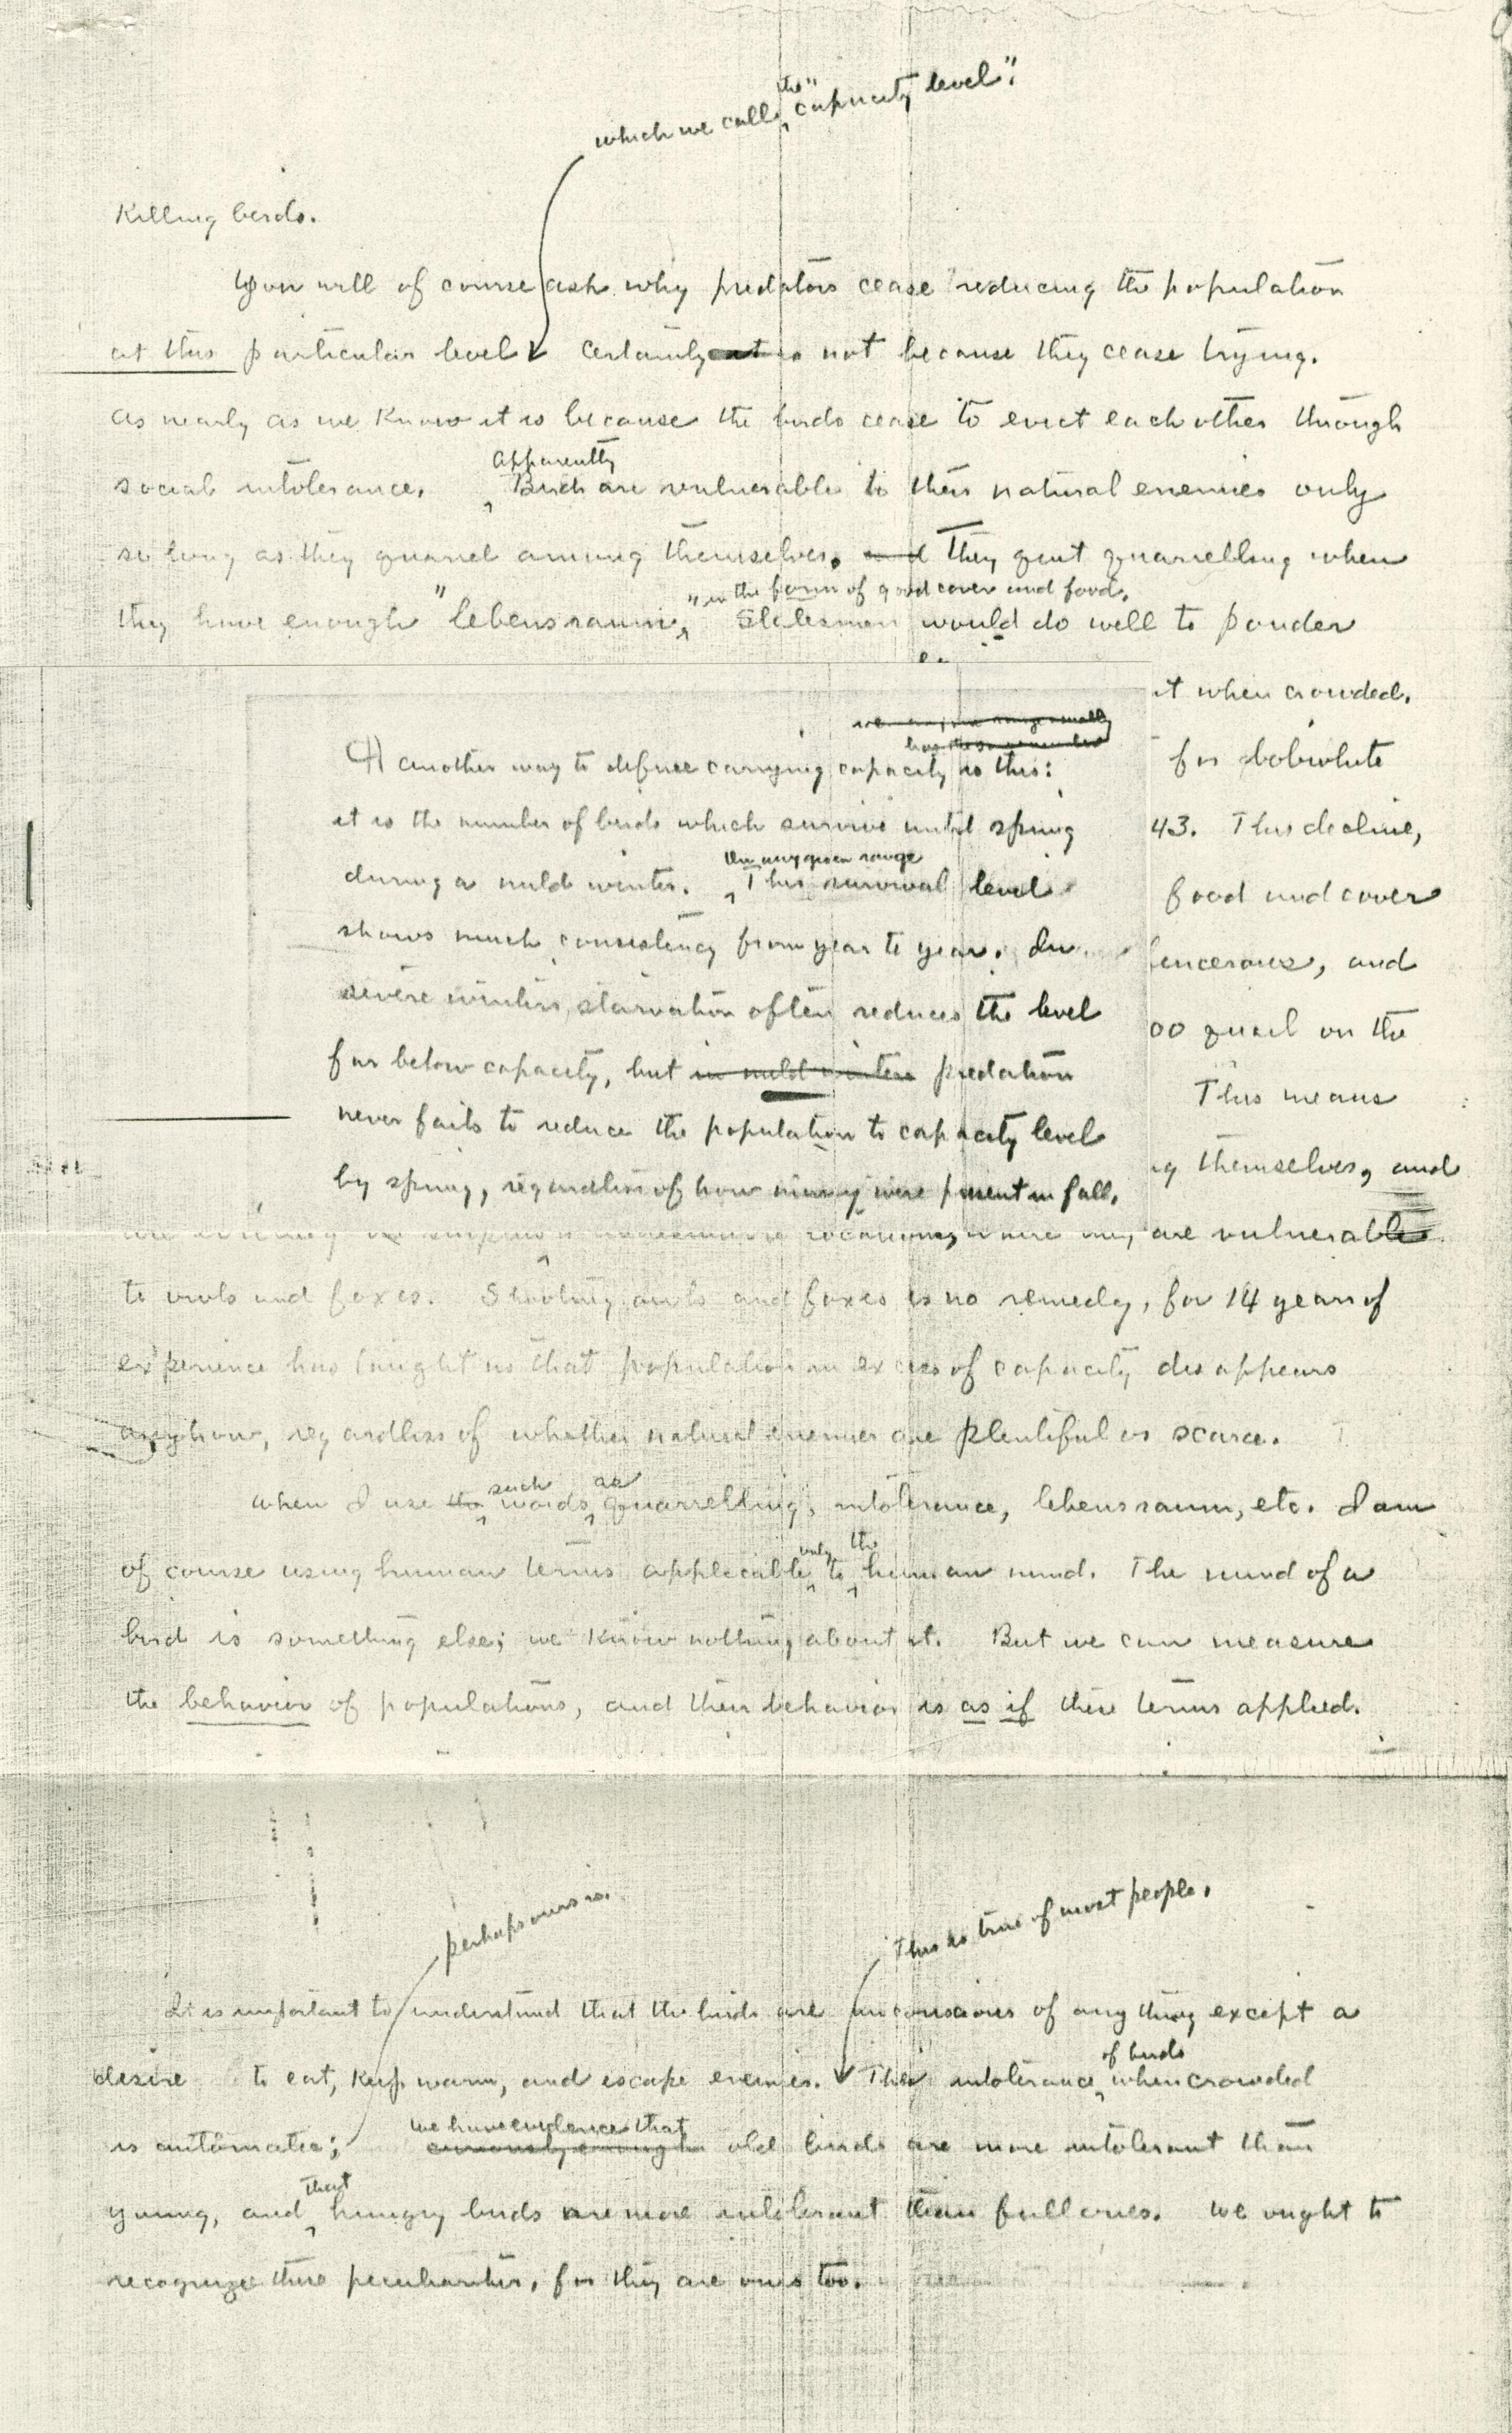 which we call the "capacity level".
Killing birds.
You will of course ask why predators cease reducing the population
at this particular level Certainly it is not because they cease trying.
As nearly as we know it is because the birds cease to evict each other through
social intolerance. Apparently Birds are vulnerable to their natural enemies only
so long as they quarrel among themselves. and They quit quarrelling when
they have enough "lebensraum," in the form of good cover and food. Statesmen would do well to ponder
it when crowded.
for bobwhite
43. This decline,
food and cover
fencerows, and
00 quail on the
This means
themselves, and
A another way to define carrying capacity is this:
it is the number of birds which survive until spring
during a mild winter. On any given range This survival level
shows much consistency from year to year. In
severe winters, starvation often reduces the level
far below capacity, but in mild winters predation
never fails to reduce the population to capacity level
by spring, regardless of how many were present in fall.
are vulnerable
to owls and foxes. Shooting owls and foxes is no remedy, for 14 years of
experience has taught us that population in excess of capacity disappears
anyhow, regardless of whether natural enemies are plentiful or scarce.
When I use the such words as quarrelling, intolerance, lebensraum, etc. I am
of course using human terms applicable only to the human mind. The mind of a
bird is something else; we know nothing about it. But we can measure
the behavior of populations, and their behavior is as if these terms applied.
perhaps ours is.
This is true of most people.
It is important to understand that the birds are unconscious of any thing except a
desire to eat, keep warm, and escape enemies. The intolerance of birds when crowded
is automatic; we have evidence that curiously enough old birds are more intolerant than
young, and that hungry birds are more intolerant than full ones. We ought to
recognize these peculiarities, for they are ours too.